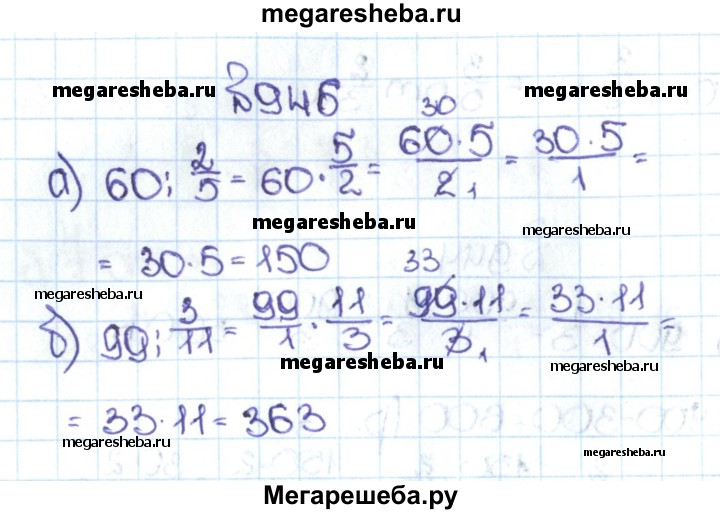 megaresheba.ru
megaresheba.ru megaresheba.ru
№946
30
а) 60 : 2/5 = 60 · 5/2 = 60·5/2 1 = 30·5/1 =
megaresheba.ru megaresheba.ru
= 30·5 = 150 33
megaresheba.ru megaresheba.ru
б) 99 : 3/11 = 99/1 · 11/3 = 99·11/3 1 = 33·11/1 =
megaresheba.ru megaresheba.ru
= 33·11 = 363
megaresheba.ru megaresheba.ru
Мегарешеба.ру